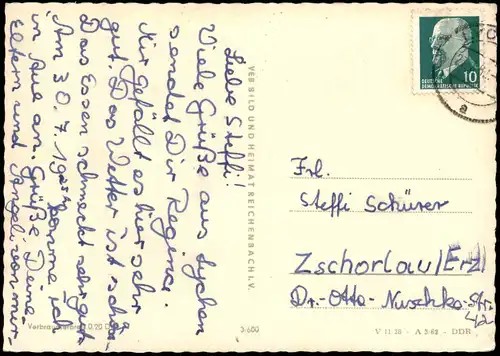 Liebe Steffi!
Viele Grüße aus Lychen
sendet Dir Regina.
Mir gefällt es hier sehr
gut. Das Wetter ist schön.
Das Essen schmeckt sehr gut.
Am 30.7.19 komme ich
in Aue an. Grüße Deine
Eltern und von mir.
VEB BILD UND HEIMAT REICHENBACH I. V.
10
DEUTSCHE
DEMOKRATISCHE REPUBLIK
a
Frl.
Steffi Schürer
Zschorlau/Erz
Dr.-Otto-Nuschke-Str.
42
3/600
V 11 28 - A 3/63 - DDR